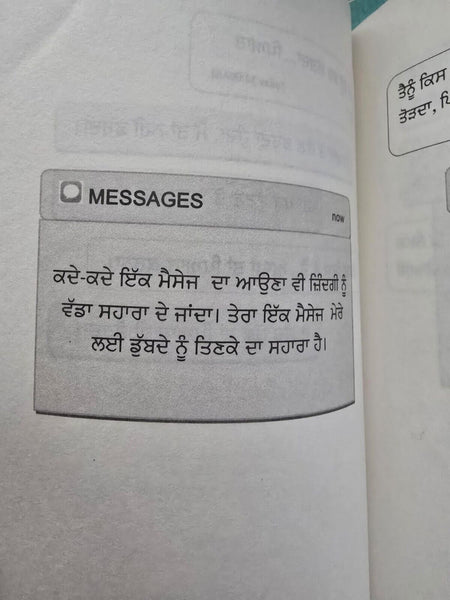 MESSAGES
now
ਕਦੇ-ਕਦੇ ਇੱਕ ਮੈਸੇਜ ਦਾ ਆਉਣਾ ਵੀ ਜ਼ਿੰਦਗੀ ਨੂੰ
ਵੱਡਾ ਸਹਾਰਾ ਦੇ ਜਾਂਦਾ। ਤੇਰਾ ਇੱਕ ਮੈਸੇਜ ਮੇਰੇ
ਲਈ ਡੁੱਬਦੇ ਨੂੰ ਤਿਣਕੇ ਦਾ ਸਹਾਰਾ ਹੈ।
ਤੈਨੂੰ ਕਿਸ
ਤੋੜਦਾ,